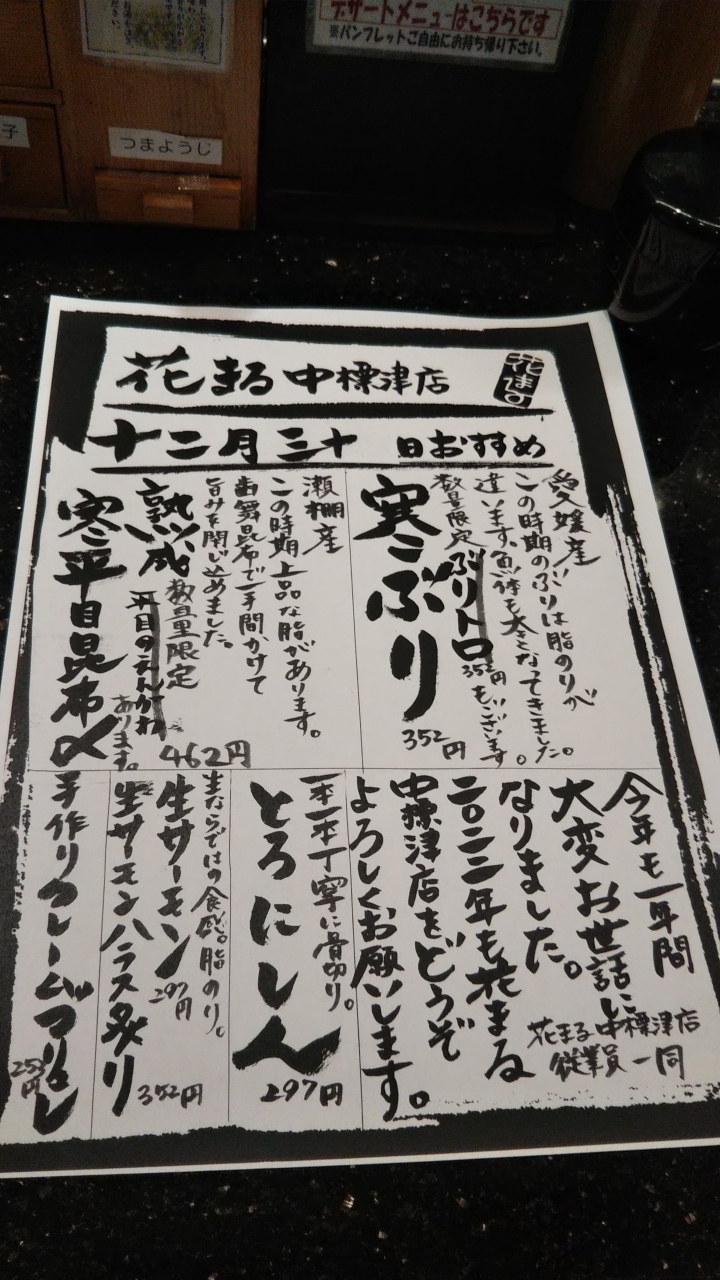 デザートメニューはこちらです
※パンフレットご自由にお持ち帰り下さい。
子
つまようじ
花まる 中標津店
花まる
十二月三十日おすすめ
愛媛産
この時期のぶりは脂のりが
違います。魚体も大きくなってきました。
数量限定 ぶりトロ 352円もございます。
寒ぶり
352円
瀬棚産
この時期上品な脂があります。
歯舞昆布で一手間かけて
旨みを閉じ込めました。
熟成 数量限定
平目のえんがわあります。
寒平目昆布〆
462円
今年も一年間
大変お世話に
なりました。
二〇二二年も花まる
中標津店をどうぞ
よろしくお願いします。
花まる 中標津店
従業員一同
一本一本丁寧に骨切り。
とろにしん
297円
生ならではの食感。脂のり。
生サーモン
297円
生サーモンハラス炙り
352円
手作りクレームブリュレ
253円